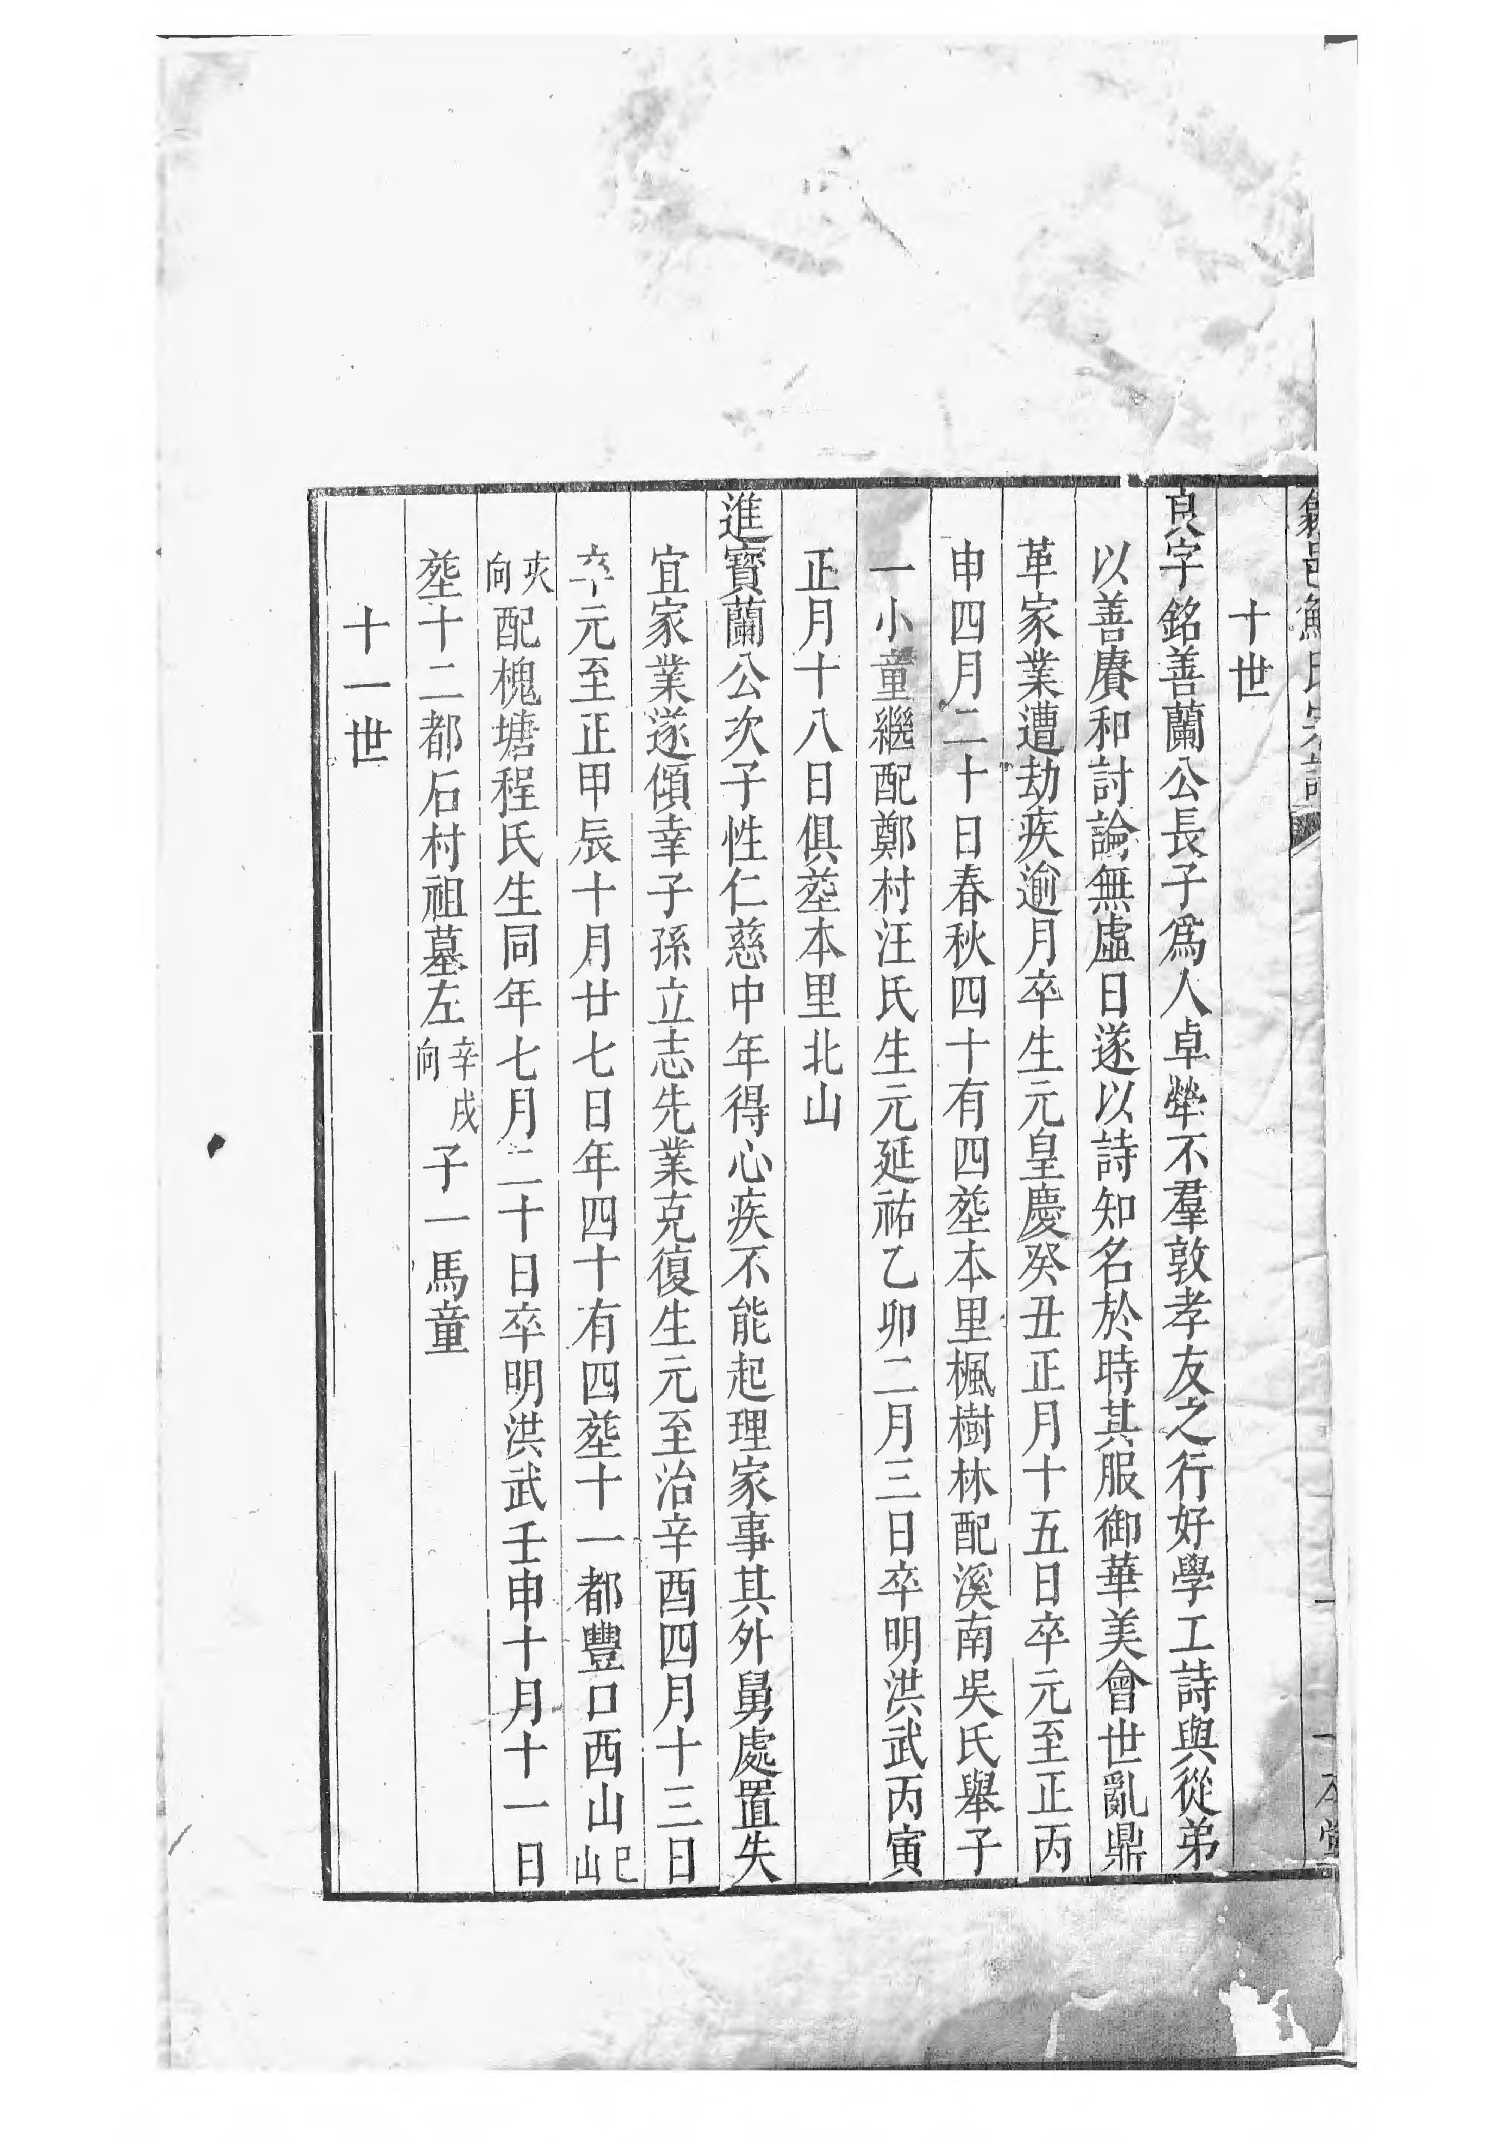 鮑氏宗譜
一
一本堂
十世
良字銘善蘭公長子爲人卓犖不羣敦孝友之行好學工詩與從弟
以善賡和討論無虛日遂以詩知名於時其服御華美會世亂鼎
革家業遭劫疾逾月卒生元皇慶癸丑正月十五日卒元至正丙
申四月二十日春秋四十有四塟本里楓樹林配溪南吳氏舉子
一小童繼配鄭村汪氏生元延祐乙卯二月三日卒明洪武丙寅
正月十八日俱塟本里北山
進寶蘭公次子性仁慈中年得心疾不能起理家事其外舅處置失
宜家業遂傾幸子孫立志先業克復生元至治辛酉四月十三日
卒元至正甲辰十月廿七日年四十有四塟十一都豐口西山巳山
夾向配槐塘程氏生同年七月二十日卒明洪武壬申十月十一日
塟十二都石村祖墓左辛戌向子一馬童
十一世